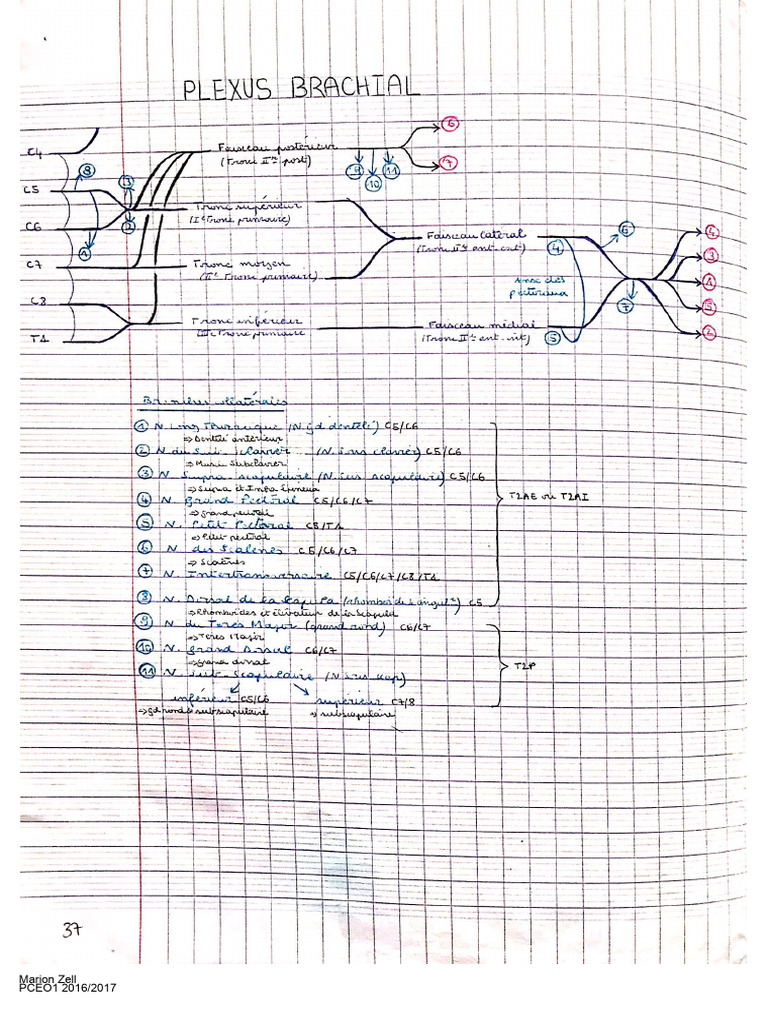 PLEXUS BRACHIAL
C4
C5
C6
C7
C8
T1
8
3
2
1
Faisceau postérieur
(Tronc IIre post)
9
10
11
6
7
Tronc supérieur
(Ier Tronc primaire)
Tronc moyen
(IIe Tronc primaire)
Tronc inférieur
IIIe Tronc primaire
Faisceau latéral
(Tronc IIre ant-ext)
Faisceau médial
(Tronc IIre ant-int)
4
5
Anse des
pectoraux
6
7
4
3
1
5
2
Branches collatérales
1 N. Long Thoracique (N. gd dentelé) C5/C6
⇒ Dentelé antérieur
2 N. du Sub clavier (N. sous clavier) C5/C6
⇒ Muscle Subclavier
3 N. Supra scapulaire (N. sus scapulaire) C5/C6
⇒ Supra et Infra épineux
4 N. Grand Pectoral C5/C6/C7
⇒ grand pectoral
5 N. Petit Pectoral C8/T1
⇒ Petit pectoral
6 N. des Scalènes C5/C6/C7
⇒ Scalènes
7 N. Intertransversaire C5/C6/C7/C8/T1
8 N. Dorsal de la Scapula C5
⇒ Rhomboïdes et élévateur de la scapula
T2AE ou T2AI
9 N. du Teres Major (grand rond) C6/C7
⇒ Teres Major
10 N. grand dorsal C6/C7
⇒ grand dorsal
11 N. sub scapulaire (N. sous scap)
inférieur C5/C6 supérieur C7/8
⇒ gd rond & subscapulaire ⇒ subscapulaire
T2P
37
Marion Zell
PCEO1 2016/2017